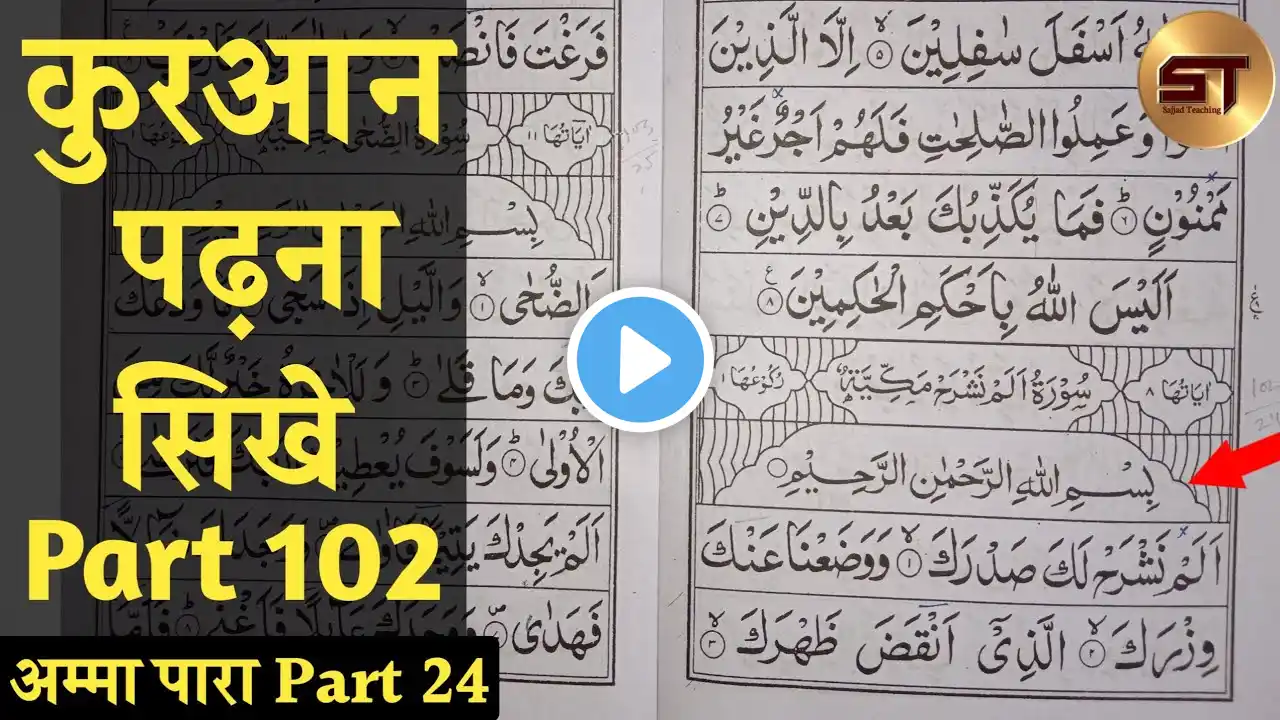 कुरआन
पढ़ना
सिखे
Part 102
अम्मा पारा Part 24
ST
Sajjad Teaching
اَسْفَلَ سٰفِلِیْنَ ۙ۵ اِلَّا الَّذِیْنَ
وَعَمِلُوا الصّٰلِحٰتِ فَلَهُمْ اَجْرٌ غَیْرُ
مَمْنُوْنٍ ؕ۶ فَمَا یُكَذِّبُكَ بَعْدُ بِالدِّیْنِ ؕ۷
اَلَیْسَ اللّٰهُ بِاَحْكَمِ الْحٰكِمِیْنَ ۸
اٰیَاتُهَا ۸ سُوْرَةُ اَلَمْ نَشْرَحْ مَكِّیَّةٌ رُكُوْعُهَا ۱
بِسْمِ اللّٰهِ الرَّحْمٰنِ الرَّحِیْمِ
اَلَمْ نَشْرَحْ لَكَ صَدْرَكَ ۙ۱ وَوَضَعْنَا عَنْكَ
وِزْرَكَ ۙ۲ الَّذِیْۤ اَنْقَضَ ظَهْرَكَ ۙ۳
فَرَغْتَ فَانْصَبْ
اٰیَاتُهَا ۱۱ سُوْرَةُ الضُّحٰی
بِسْمِ اللّٰهِ
وَالضُّحٰی ۙ۱ وَالَّیْلِ اِذَا سَجٰی مَا وَدَّعَكَ
رَبُّكَ وَمَا قَلٰی ؕ۳ وَلَلْاٰخِرَةُ خَیْرٌ لَّكَ مِنَ
الْاُوْلٰی ؕ۴ وَلَسَوْفَ یُعْطِیْكَ
اَلَمْ یَجِدْكَ یَتِیْمًا
فَهَدٰی ۪۷ وَوَجَدَكَ عَآىِٕلًا فَاَغْنٰی ؕ۸ فَاَمَّا